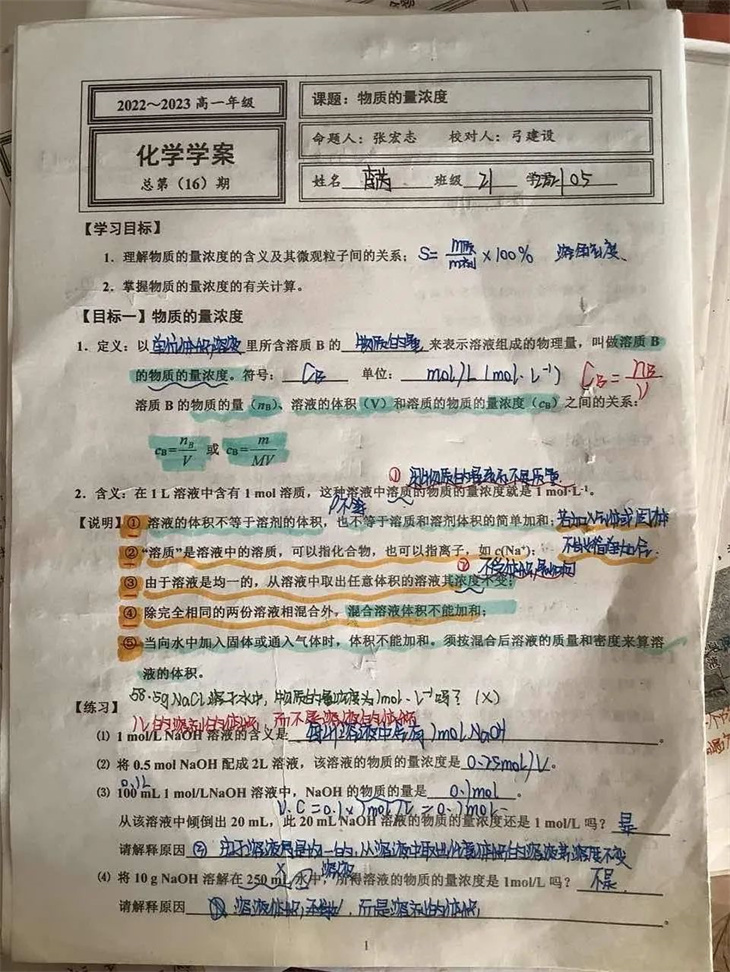 2022～2023 高一年级
化学学案
总第（16）期
课题：物质的量浓度
命题人：张宏志 校对人：弓建设
姓名 班级 21 学号 05
【学习目标】
1．理解物质的量浓度的含义及其微观粒子间的关系； S= m质/m剂 ×100%
2．掌握物质的量浓度的有关计算。
【目标一】物质的量浓度
1．定义：以 单位体积溶液 里所含溶质 B 的 物质的量 来表示溶液组成的物理量，叫做溶质 B
的物质的量浓度。符号： CB 单位： mol/L (mol·L⁻¹) CB = nB/V
溶质 B 的物质的量（nB）、溶液的体积（V）和溶质的物质的量浓度（cB）之间的关系：
cB=nB/V 或 cB=m/MV
①
2．含义：在 1 L 溶液中含有 1 mol 溶质，这种溶液中溶质的物质的量浓度就是 1 mol·L⁻¹。
不等
【说明】① 溶液的体积不等于溶剂的体积，也不等于溶质和溶剂体积的简单加和； 若加入气体或固体
②“溶质”是溶液中的溶质，可以指化合物，也可以指离子，如 c(Na⁺)；
③ 由于溶液是均一的，从溶液中取出任意体积的溶液其浓度不变；
④ 除完全相同的两份溶液相混合外，混合溶液体积不能加和；
⑤ 当向水中加入固体或通入气体时，体积不能加和。须按混合后溶液的质量和密度来算溶
液的体积。
58.5g NaCl 溶于水中，物质的量浓度为1mol·L⁻¹吗？（X）
【练习】
1L的溶剂的体积，而不是溶液的体积
⑴ 1 mol/L NaOH 溶液的含义是 每1L溶液中含有1mol NaOH 。
⑵ 将 0.5 mol NaOH 配成 2L 溶液，该溶液的物质的量浓度是 0.25mol/L 。
0.1L
⑶ 100 mL 1 mol/LNaOH 溶液中，NaOH 的物质的量是 0.1mol 。
V·C=0.1×1mol/L=0.1mol
从该溶液中倾倒出 20 mL，此 20 mL NaOH 溶液的物质的量浓度还是 1 mol/L 吗？ 是
请解释原因 ③ 由于溶液是均一的，从溶液中取出任意体积的溶液其浓度不变
X 溶液
⑷ 将 10 g NaOH 溶解在 250 mL 水中，所得溶液的物质的量浓度是 1mol/L 吗？ 不是
请解释原因 。
1